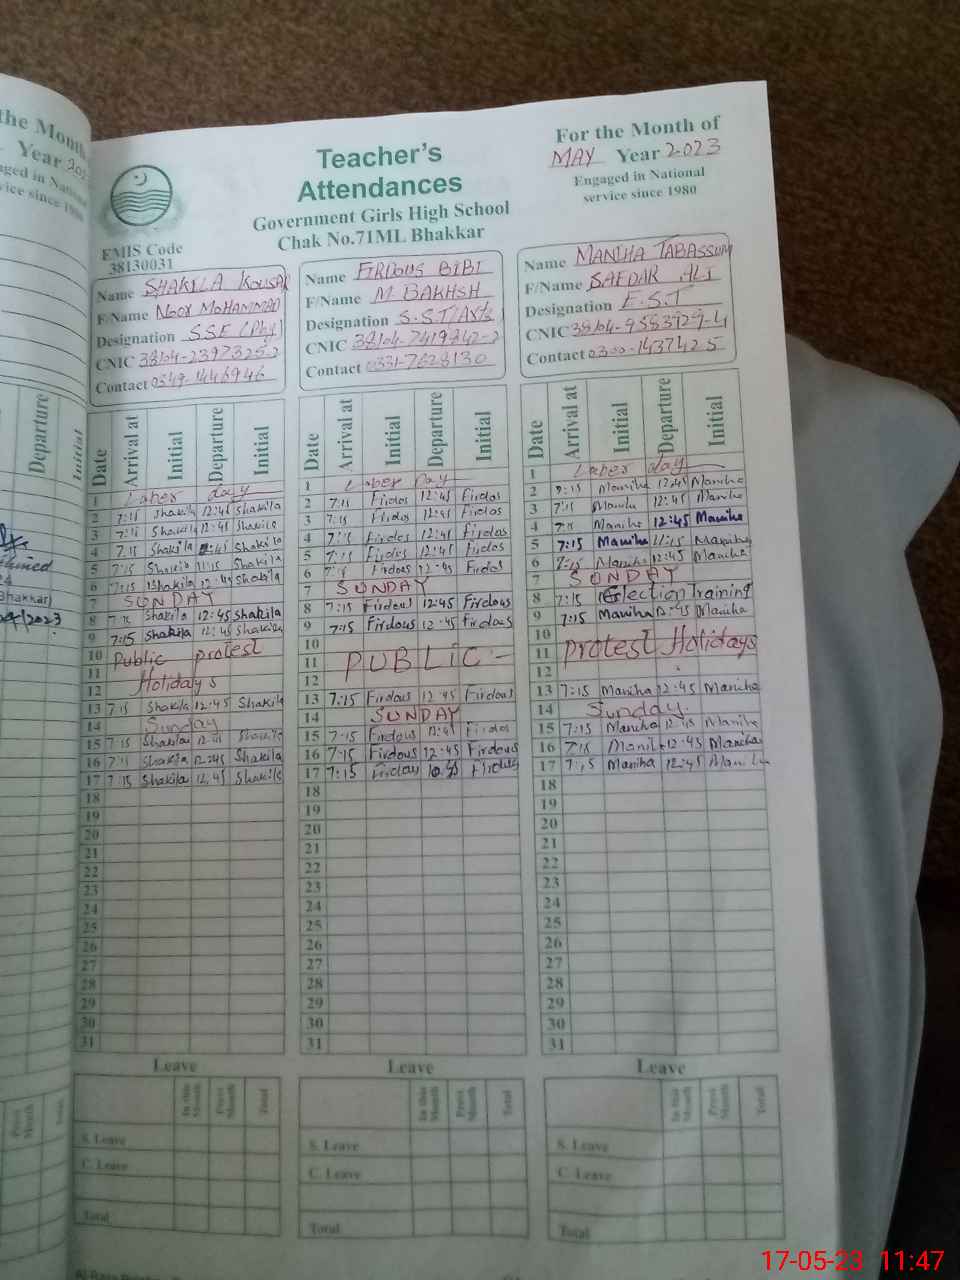 the Month
Year 20
aged in National
vice since 1980
Departure
Initial
Bhakkar)
Teacher's
Attendances
Government Girls High School
Chak No.71ML Bhakkar
For the Month of
MAY Year 2023
Engaged in National
service since 1980
EMIS Code
38130031
Name SHAKILA KOUSAR
F/Name NOOR MOHAMMAD
Designation SSE (Phy)
CNIC 38104-2397325-2
Contact 0349-1446946
Date Arrival at Initial Departure Initial
1 Laber day
2 7:15 Shakila 12:45 Shakila
3 7:15 Shakila 12:45 Shakila
4 7:15 Shakila 12:45 Shakila
5 7:15 Shakila 11:15 Shakila
6 7:15 Shakila 12:45 Shakila
7 SUNDAY
8 7:15 Shakila 12:45 Shakila
9 7:15 Shakila 12:45 Shakila
10 Public protest
11
12 Holidays
13 7:15 Shakila 12:45 Shakila
14 Sunday
15 7:15 Shakila 12:45 Shakila
16 7:15 Shakila 12:45 Shakila
17 7:15 Shakila 12:45 Shakila
18
19
20
21
22
23
24
25
26
27
28
29
30
31
Leave
In this Month Prev Month Total
S. Leave
C. Leave
Total
Name FIRDOUS BIBI
F/Name M BAKHSH
Designation S.S.T(Arts)
CNIC 38104-7419842-2
Contact 0331-7628130
Date Arrival at Initial Departure Initial
1 Laber Day
2 7:15 Firdos 12:45 Firdos
3 7:15 Firdos 12:45 Firdos
4 7:15 Firdos 12:45 Firdos
5 7:15 Firdos 12:45 Firdos
6 7:15 Firdos 12:45 Firdos
7 SUNDAY
8 7:15 Firdous 12:45 Firdous
9 7:15 Firdous 12:45 Firdous
10
11 PUBLIC -
12
13 7:15 Firdous 12:45 Firdous
14 SUNDAY
15 7:15 Firdous 12:45 Firdos
16 7:15 Firdous 12:45 Firdous
17 7:15 Firdous 10:45 Firdous
18
19
20
21
22
23
24
25
26
27
28
29
30
31
Leave
In this Month Prev Month Total
S. Leave
C. Leave
Total
Name MANIHA TABASSUM
F/Name SAFDAR ALI
Designation E.S.T
CNIC 38104-9583929-4
Contact 0300-1437425
Date Arrival at Initial Departure Initial
1 Laber day
2 7:15 Maniha 12:45 Maniha
3 7:15 Maniha 12:45 Maniha
4 7:15 Maniha 12:45 Maniha
5 7:15 Maniha 11:15 Maniha
6 7:15 Maniha 12:45 Maniha
7 SUNDAY
8 7:15 Election Training
9 7:15 Maniha 12:45 Maniha
10
11 Protest Holidays
12
13 7:15 Maniha 12:45 Maniha
14 Sunday.
15 7:15 Maniha 12:45 Maniha
16 7:15 Maniha 12:45 Maniha
17 7:15 Maniha 12:45 Maniha
18
19
20
21
22
23
24
25
26
27
28
29
30
31
Leave
In this Month Prev Month Total
S. Leave
C. Leave
Total
17-05-23 11:47